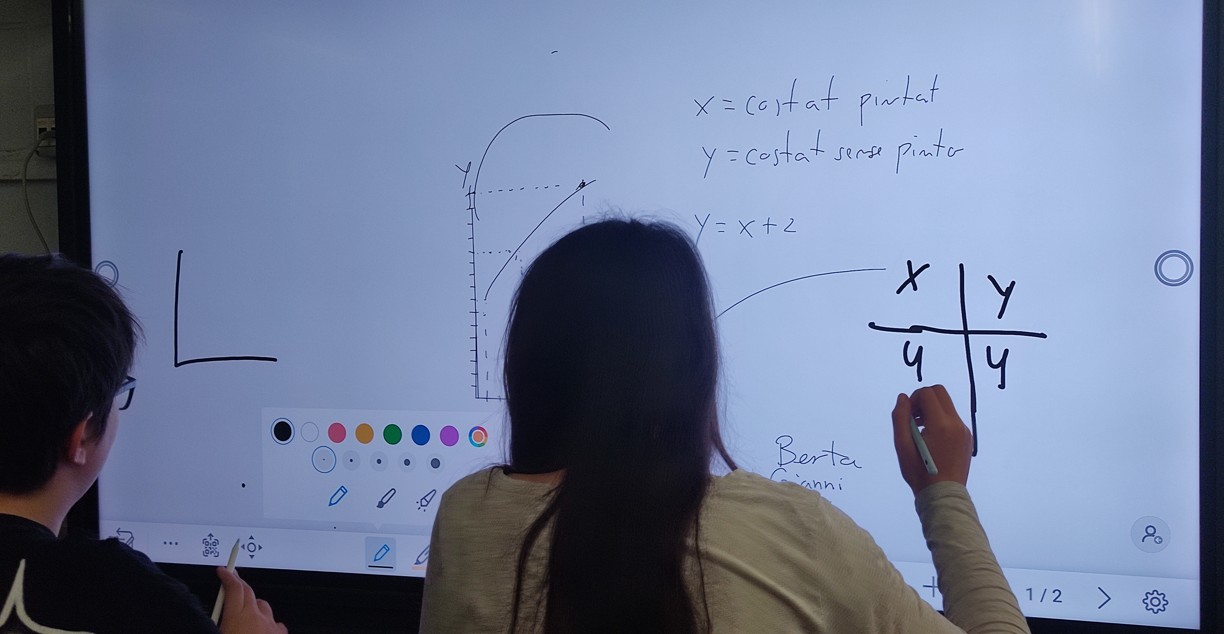 x = costat pintat
y = costat sense pintar
Y
y = x + 2
X Y
y y
Berta
Gianni
1/2